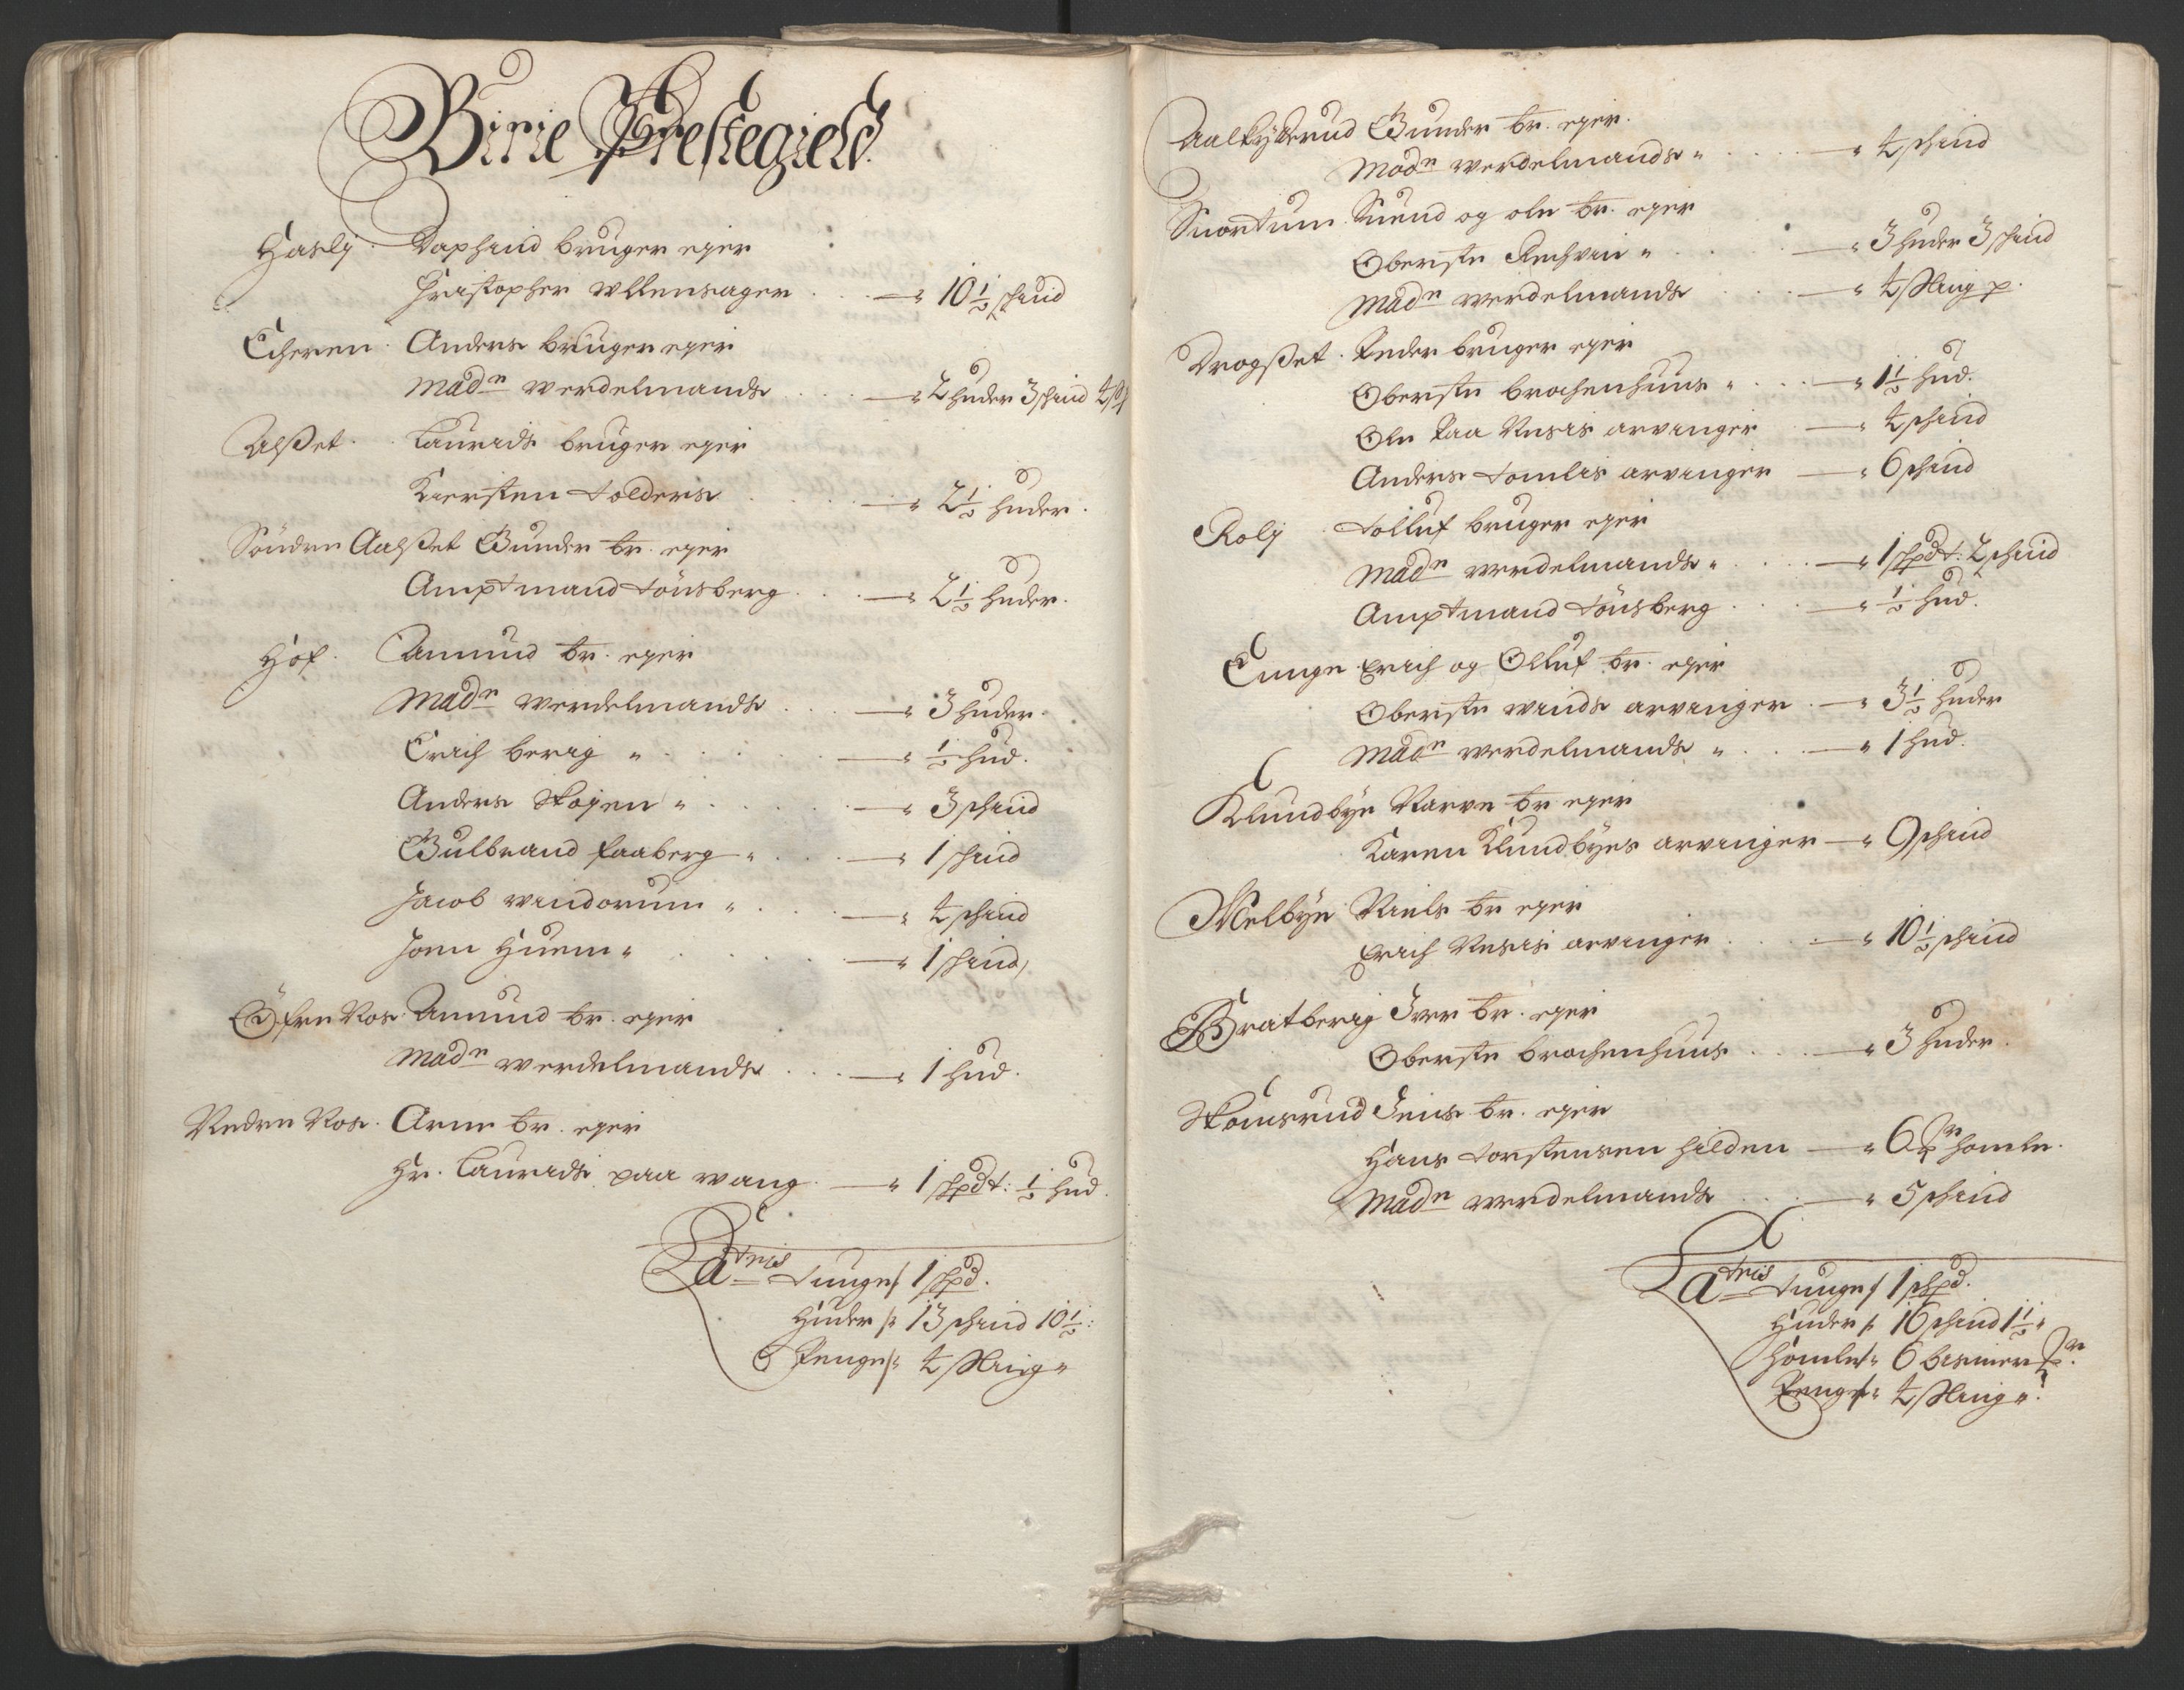 Birie Prestegield
Hasli. Daghind bruger eyer
Christopher Ullensager 10½ schind
Echeren. Anders bruger eyer
Madm Werdelmands 2 huder 3 schind 4 sk
Alsset. Laurids bruger eyer
Kiersten Tolders 2½ huder.
Söndre Aalsset Gunder br. eyer
Amptmand Tönsberg 2½ huder.
Hof. Amund br. eyer
Madm Werdelmands 3 huder.
Erich Berig ½ hud.
Anders Skoyen 3 schind
Gulbrand Faaberg 1 schind
Jacob Windorum 4 schind
Joen Huem 1 schind
Öfre Ros. Amund br. eyer
Madm Werdelmands 1 hud.
Nedre Ros. Arne br. eyer
Hr. Laurids paa Wang 1 schpdt: ½ hud.
Latris Tunge 1 schpd.
Huder 13 schind 10½:
Penge 4 skling
Aalkylderud Gunder br. eyer.
Madm Werdelmands 4 schind
Snortum Suend og Ole br. eyer
Oberste Rechvin 3 huder 3 schind
Madm Werdelmands 4 skling p.
Drogsset. Peder bruger eyer
Oberste Brochenhuus 1½ hud.
Ole Paa Næsis arvinger 4 schind
Anders Tomles arvinger 6 schind
Roli Tolluf bruger eyer
Madm Werdelmands 1 schpdt: 2 schind
Amptmand Tönsberg ½ hud.
Eunge Erich og Olluf br. eyer
Oberste Winds arvinger 3½ huder
Madm Werdelmands 1 hud.
Klundbye Narve br eyer
Karen Klundbyes arvinger 9 schind
Melbye Niels br eyer
Erich Næsis arvinger 10½ schind
Bratberig Iver br. eyer
Oberste Brochenhuus 3 huder.
Skonsrud Jens br. eyer
Hans Torstensen Hilden 6 pr homle.
Madm Werdelmands 5 schind
Latris Tunge 1 schpd.
Huder 16 schind 1½
Homle 6 bismer pr.
Penge 4 skling